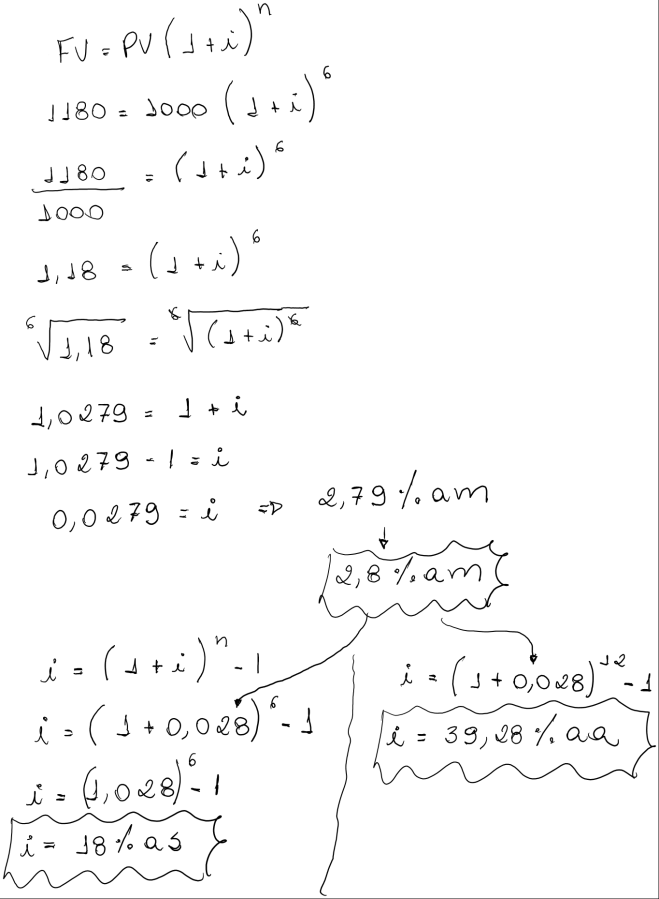 FV = PV(1+i)^n
1180 = 1000 (1+i)^6
1180/1000 = (1+i)^6
1,18 = (1+i)^6
⁶√1,18 = ⁶√(1+i)^6
1,0279 = 1 + i
1,0279 - 1 = i
0,0279 = i ⇒ 2,79 % am
2,8 % am
i = (1+i)^n - 1
i = (1+0,028)^6 - 1
i = (1,028)^6 - 1
i = 18 % as
i = (1+0,028)^12 - 1
i = 39,28 % aa